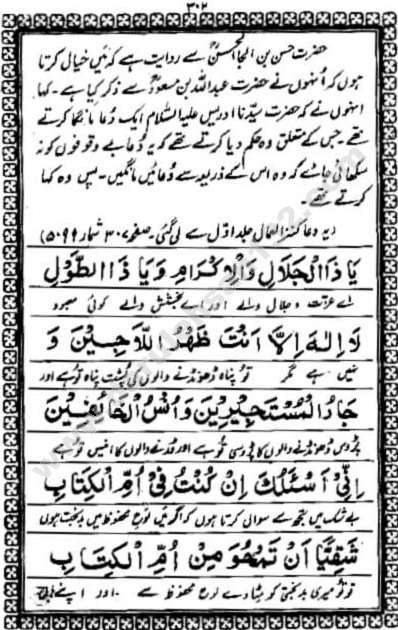 ۳۰۲
حضرت حسن بن ابی الحسنؓ سے روایت ہے کہ میں خیال کرتا
ہوں کہ انہوں نے حضرت عبداللہ بن مسعودؓ سے ذکر کیا ہے۔ کہا
انہوں نے کہ حضرت سیّدنا ادریس علیہ السّلام ایک دُعا مانگا کرتے
تھے۔ جس کے متعلق وہ حکم دیا کرتے تھے کہ یہ دُعا بے وقوفوں کو نہ
سکھائی جائے کہ وہ اس کے ذریعہ سے دُعائیں مانگیں۔ پس وہ کہا
کرتے تھے۔
(یہ دعا کنز العمال جلد اوّل سے لی گئی۔ صفحہ ۳۰۷ شمار ۵۰۹۹)
يَا ذَا الْجَلَالِ وَالْاِكْرَامِ وَيَا ذَا الطَّوْلِ
اے عزّت و جلال والے اور اے بخشش والے کوئی معبود
لَا اِلٰهَ اِلَّا اَنْتَ ظَهْرُ اللَّاجِيْنَ وَ
نہیں ہے مگر تو پناہ ڈھونڈنے والوں کی پُشت پناہ تو ہے اور
جَارُ الْمُسْتَجِيْرِيْنَ وَاُنْسُ الْخَائِفِيْنَ
پڑوس ڈھونڈنے والوں کا پڑوسی تو ہے اور ڈرنے والوں کا انیس تو ہے
اِنِّيْ اَسْئَلُكَ اِنْ كُنْتُ فِيْ اُمِّ الْكِتَابِ
بے شک میں تجھ سے سوال کرتا ہوں کہ اگر میں لوحِ محفوظ میں بدبخت ہوں
شَقِيًّا اَنْ تَمْحُوَ مِنْ اُمِّ الْكِتَابِ
تو تُو میری بدبختی کو مٹا دے لوح محفوظ سے ۔ اور اپنے